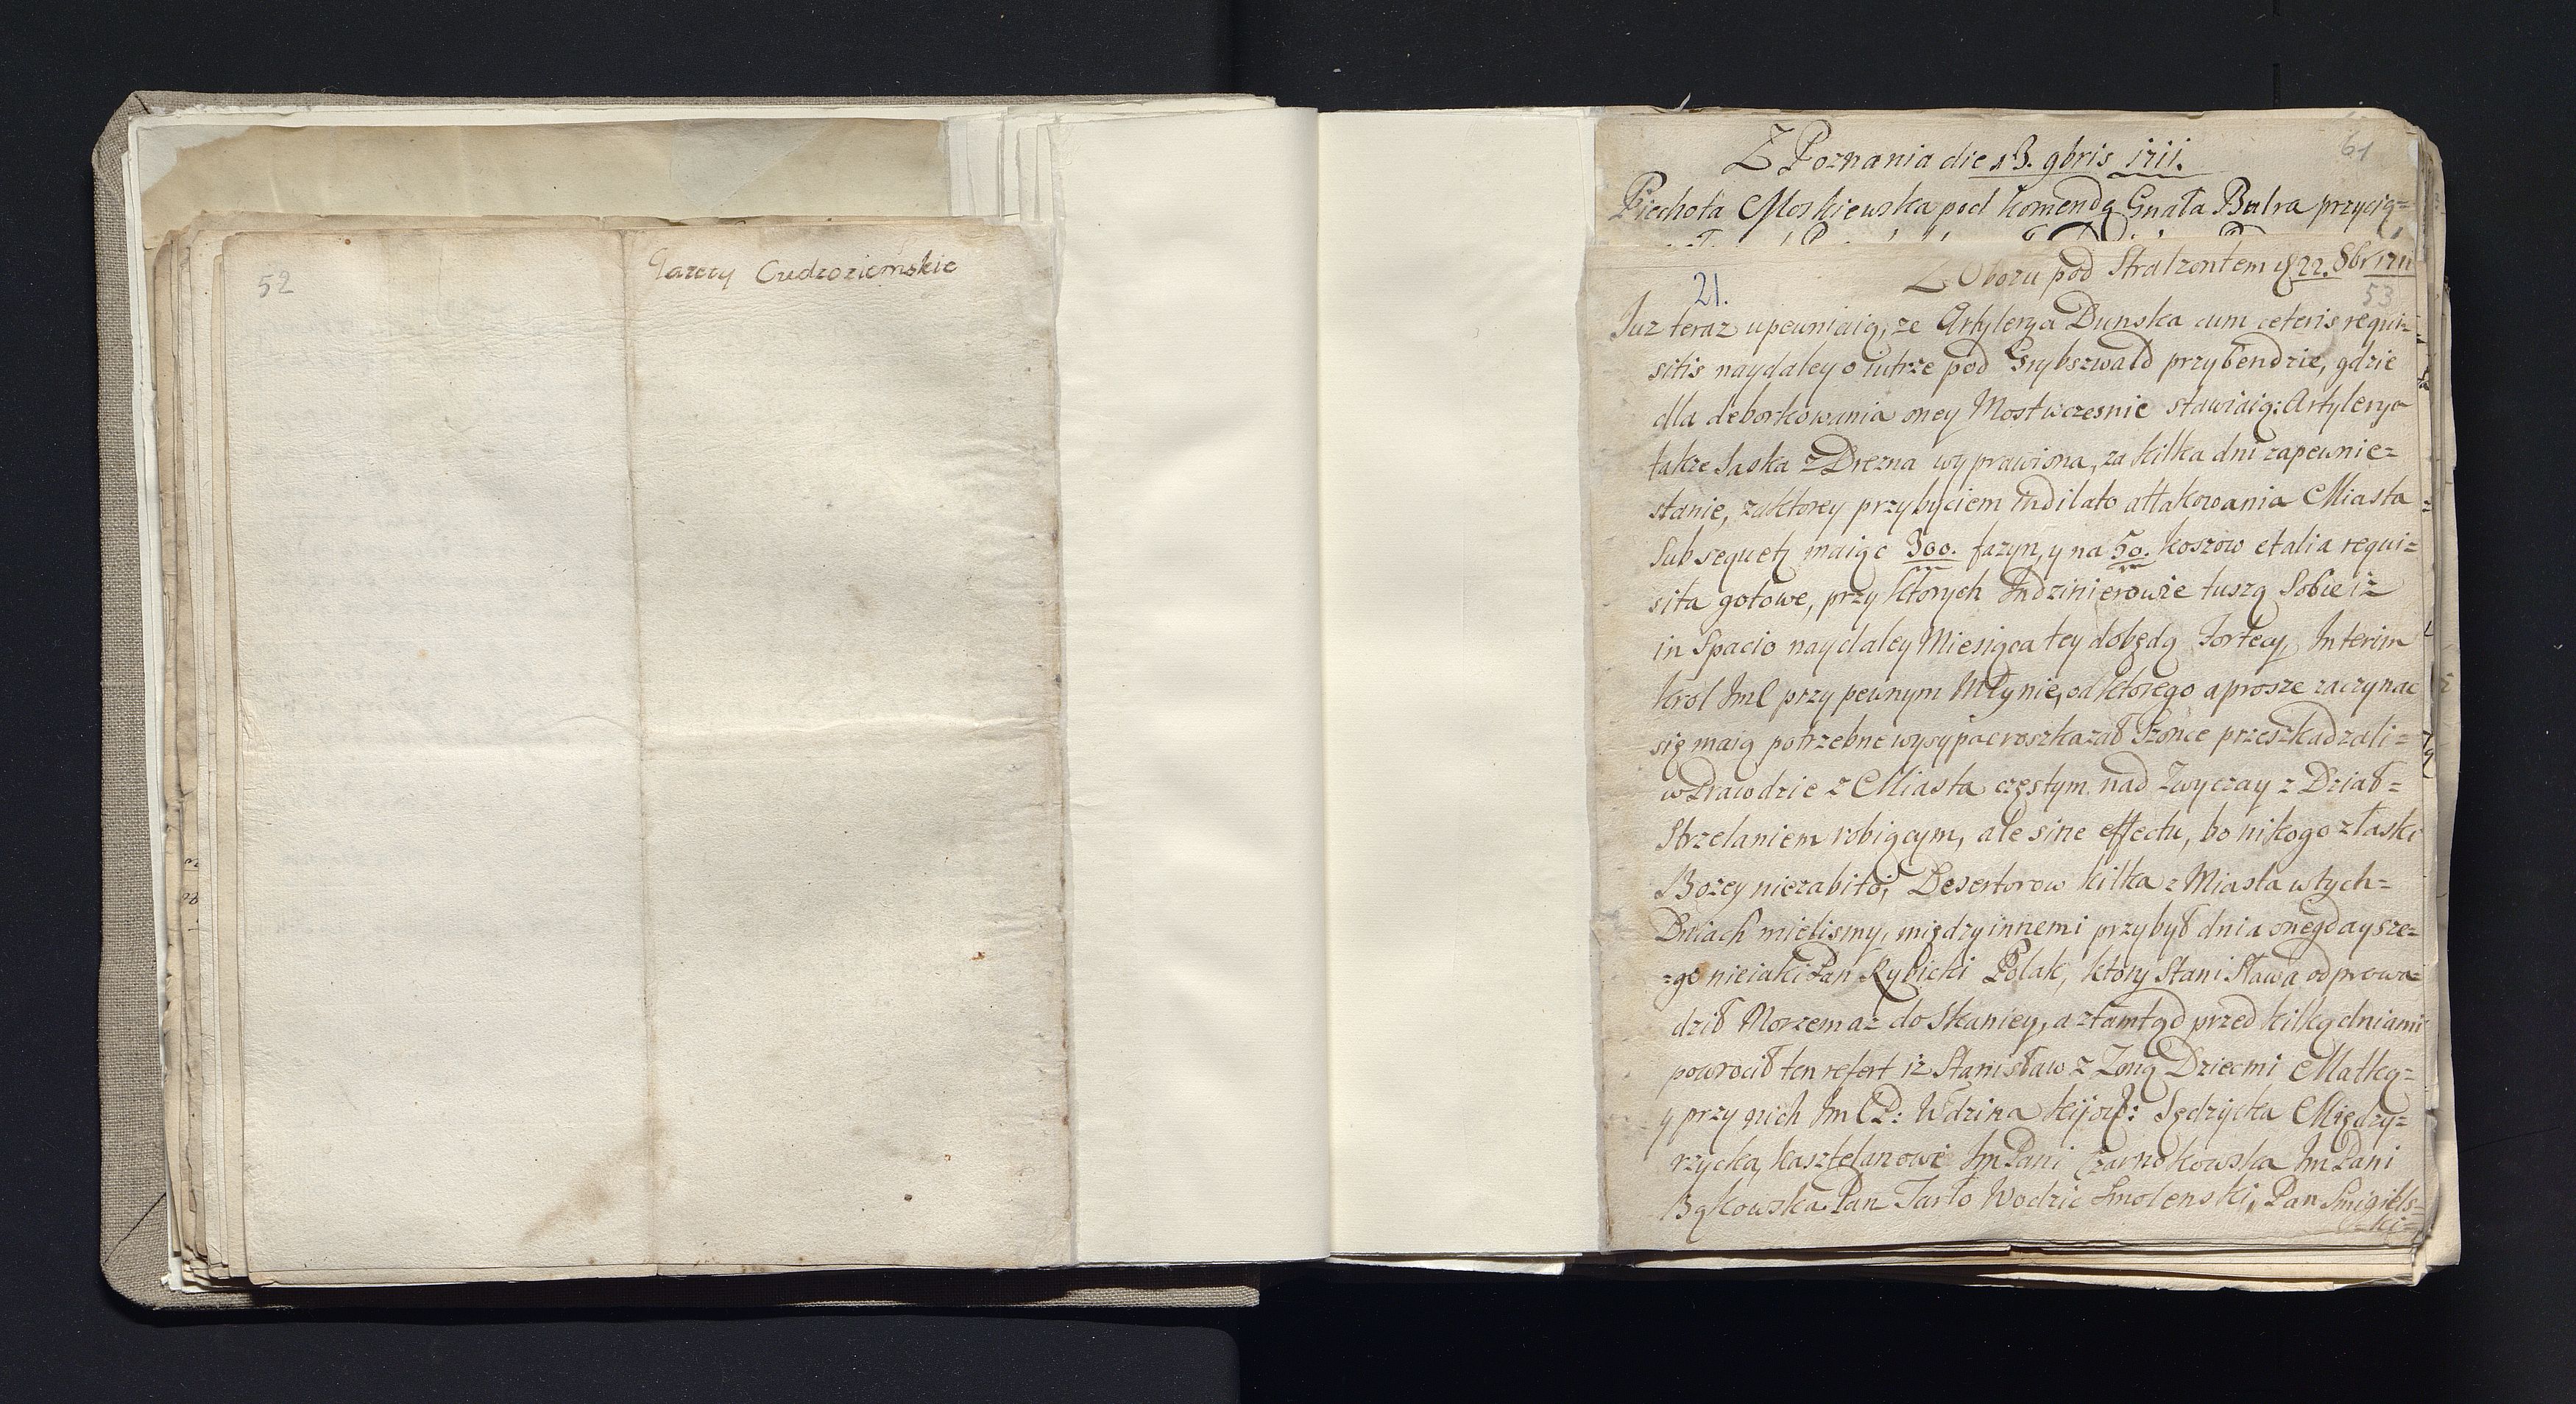 52
Gazety Cudzoziemskie
61
Z Poznania die 13. 9bris 1711.
Piechota Moskiewska pod komendą Gnała Butra przycią=
Z Obozu pod Stralzontem d 22. 8br 1711
21.
53
Juz teraz upewniaią, ze Artylerya Dunska cum ceteris requi=
sitis naydaley o iutrze pod Grybszwald przybendzie, gdzie
dla deborkowania oney Most wczesnie stawiaią: Artylerya
takze Saska z Drezna wyprawiona, za kilka dni zapewnie=
stanie, zaktorey przybyciem indilato attakowania Miasta
subsequetr maiąc 300. fazyn, y na 50. koszow et alia requi=
sita gotowe, przy ktorych Indzinierowie tuszą Sobie iz
in Spacio naydaley Miesiąca tey dobędą Fortecy, Interim
Krol Iml przy pewnym Młynie, od ktorego aprosze zaczynac
się maią potrzebne wysypac roszkazał Szonce przeszkadzali=
wPrawdzie z Miasta częstym nad Zwyczay z Dział=
Strzelaniem robiącym, ale sine effectu, bo nikogo z łaski
Bozey niezabito; Desertorow kilka z Miasta wtych=
Dniach mielismy, między innemi przybył dnia onegdaysze=
=go nieiaki Pan Rybicki Polak, ktory Stanisława odprowa=
dził Morzem az do Skaniey, a ztamtąd przed kilką dniami
powrocił ten refert iz Stanisław z Zoną Dziecmi Matką=
y przy nich Im P: Wdzina Kijow: Sędzicka Między=
rzycka, kasztelanowe Im Pani Czarnkowska Im Pani
Bąkowska Pan Tarło Wodzic Smolenski, Pan Smigiels=
=ki=